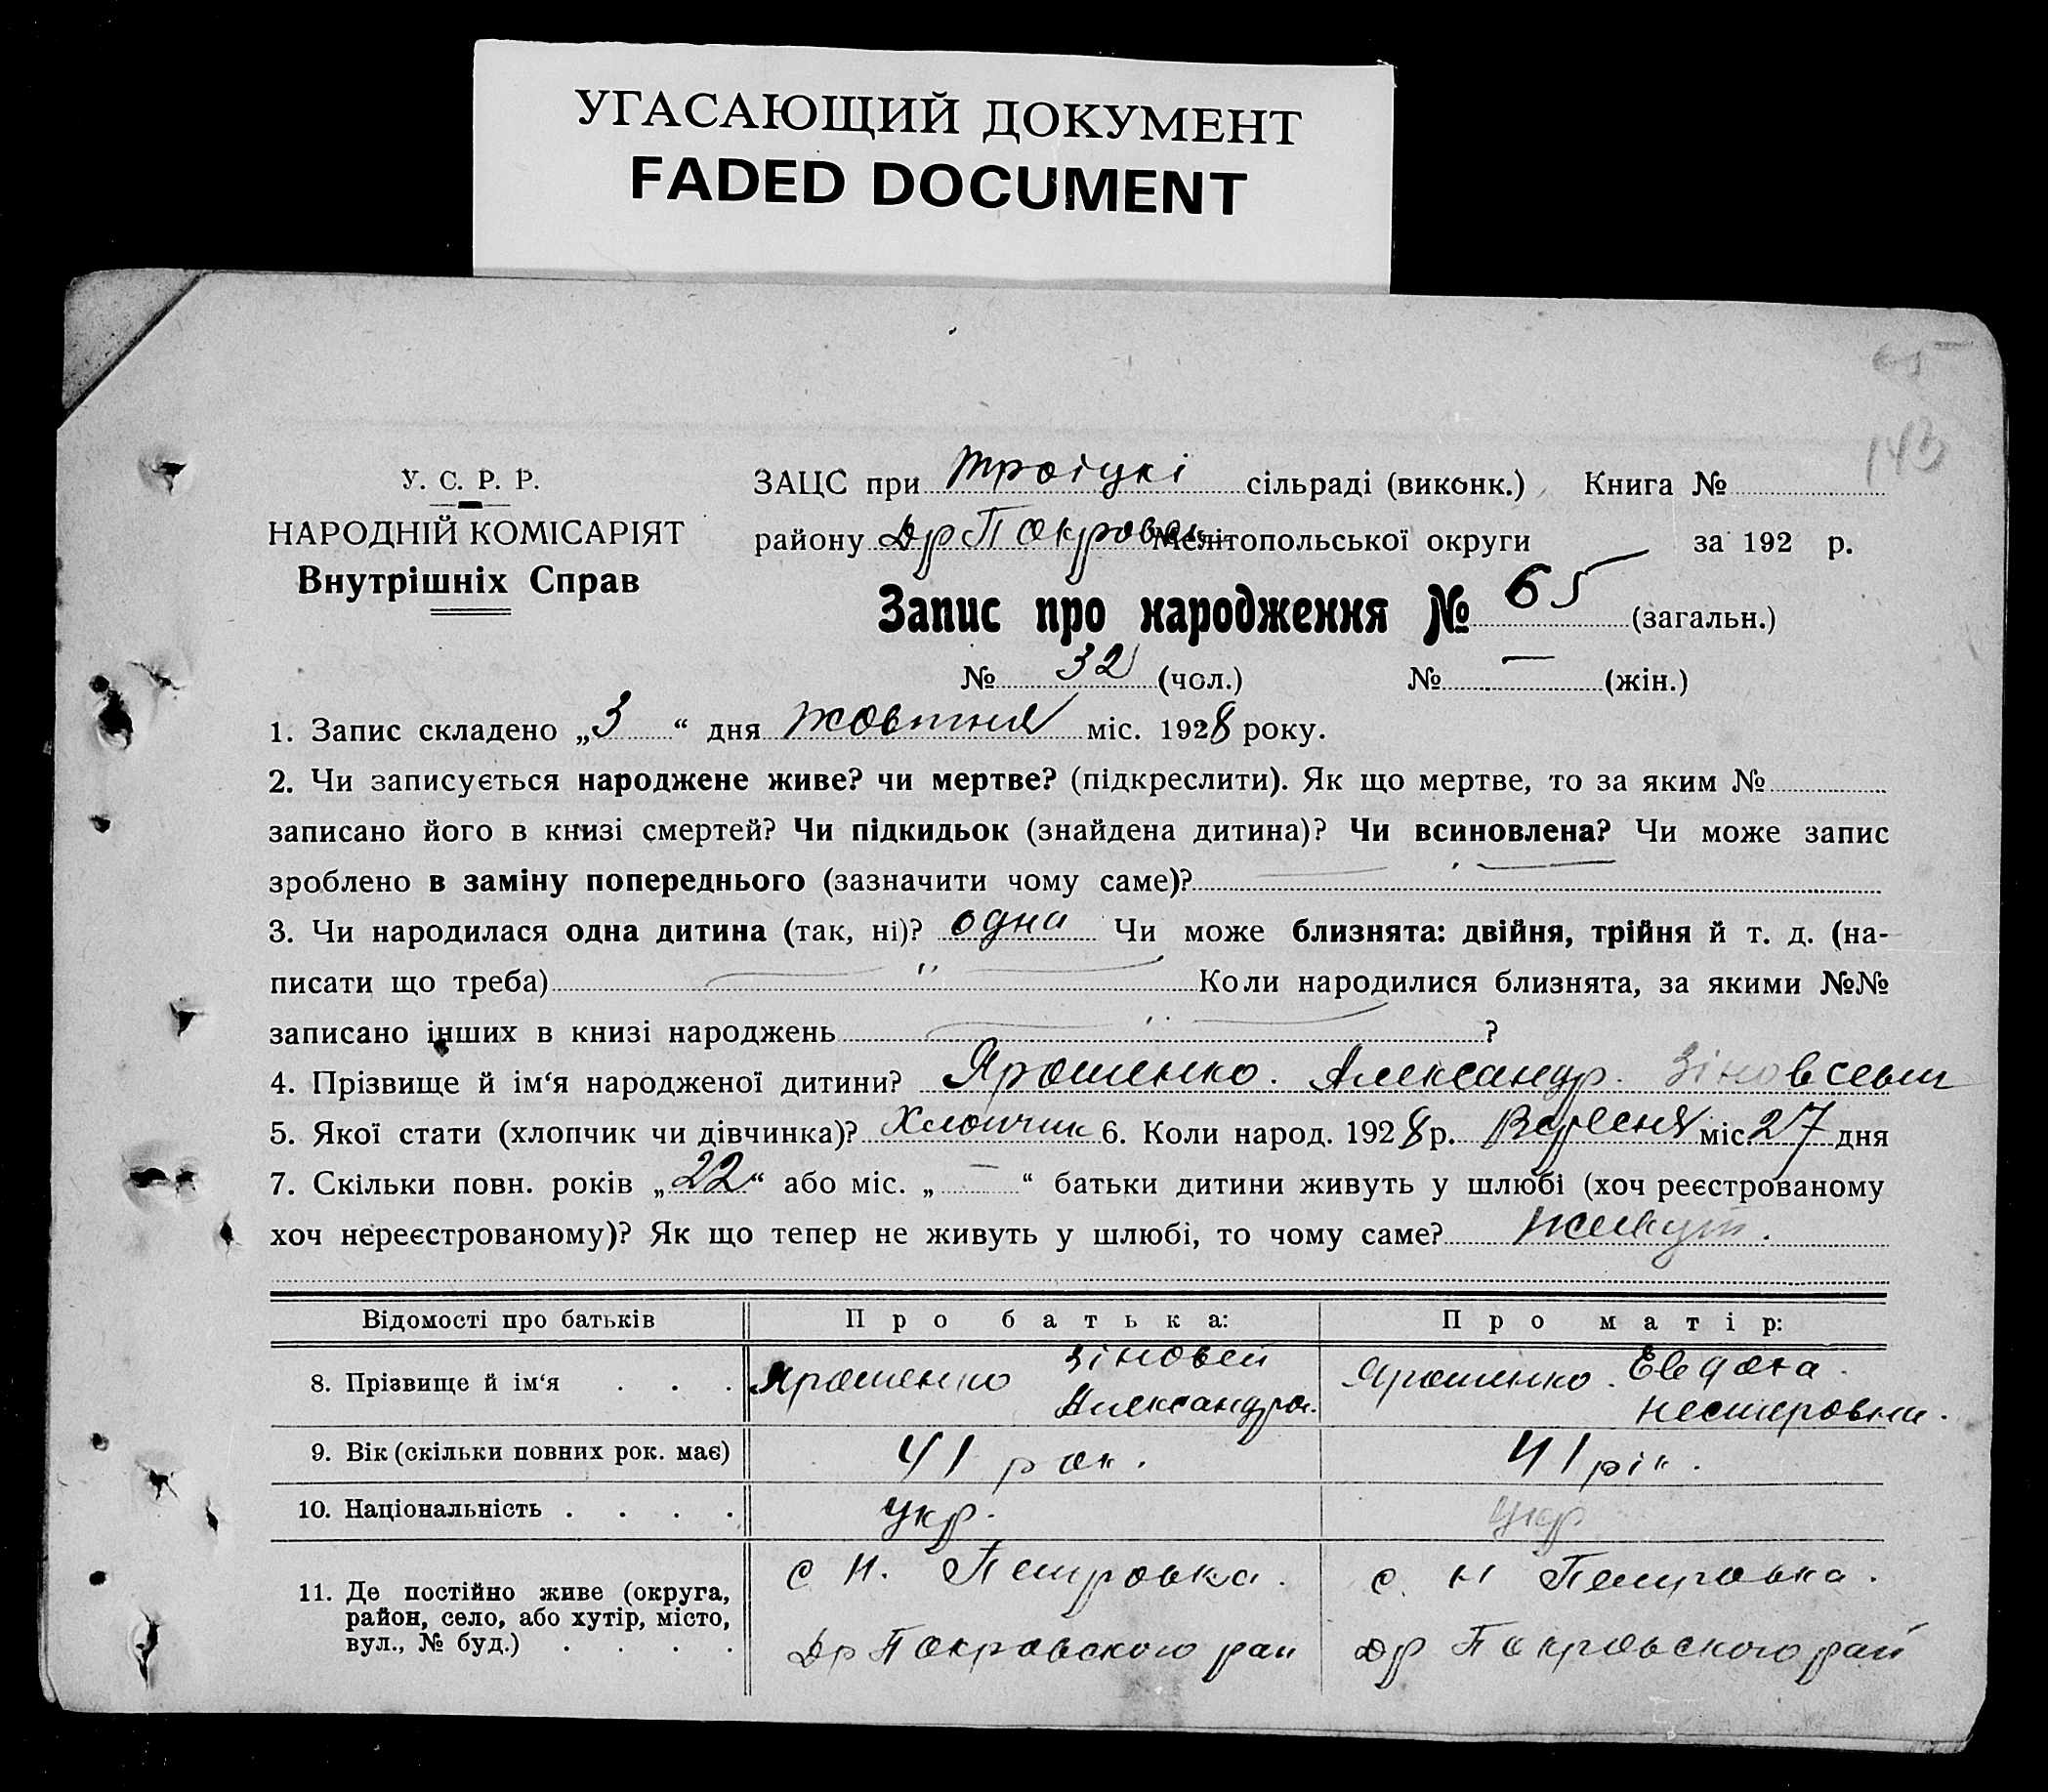 УГАСАЮЩИЙ ДОКУМЕНТ
FADED DOCUMENT
65
143
У. С. Р. Р.
НАРОДНІЙ КОМІСАРІЯТ
Внутрішніх Справ
ЗАЦС при Троіцкі сільраді (виконк.) Книга №
району Др Покровск Мелітопольської округи за 192 р.
Запис про народження № 65 (загальн.)
№ 32 (чол.) № — (жін.)
1. Запис складено „3“ дня жовтня міс. 1928 року.
2. Чи записується народжене живе? чи мертве? (підкреслити). Як що мертве, то за яким №
записано його в книзі смертей? Чи підкидьок (знайдена дитина)? Чи всиновлена? Чи може запис
зроблено в заміну попереднього (зазначити чому саме)?
3. Чи народилася одна дитина (так, ні)? одна Чи може близнята: двійня, трійня й т. д. (на-
писати що треба) — " — Коли народилися близнята, за якими №№
записано інших в книзі народжень — " — ?
4. Прізвище й ім‘я народженої дитини? Ярошенко. Александр. Зіновєевич
5. Якої стати (хлопчик чи дівчинка)? Хлопчик 6. Коли народ. 1928 р. Вересня міс. 27 дня
7. Скільки повн. років „22“ або міс. „—“ батьки дитини живуть у шлюбі (хоч реєстрованому
хоч нереєстрованому)? Як що тепер не живуть у шлюбі, то чому саме? живут.
Відомості про батьків Про батька: Про матір:
8. Прізвище й ім‘я . . . Ярошенко Зіновей Александров. Ярошенко. Евдоха. Нестеровна.
9. Вік (скільки повних рок. має) 41 рок. 41 рік.
10. Національність . . . . укр. укр
11. Де постійно живе (округа,
район, село, або хутір, місто,
вул., № буд.) . . . .
с Н. Петровка.
Др Покровского рай
с. Н Петровка.
Др Покровского рай